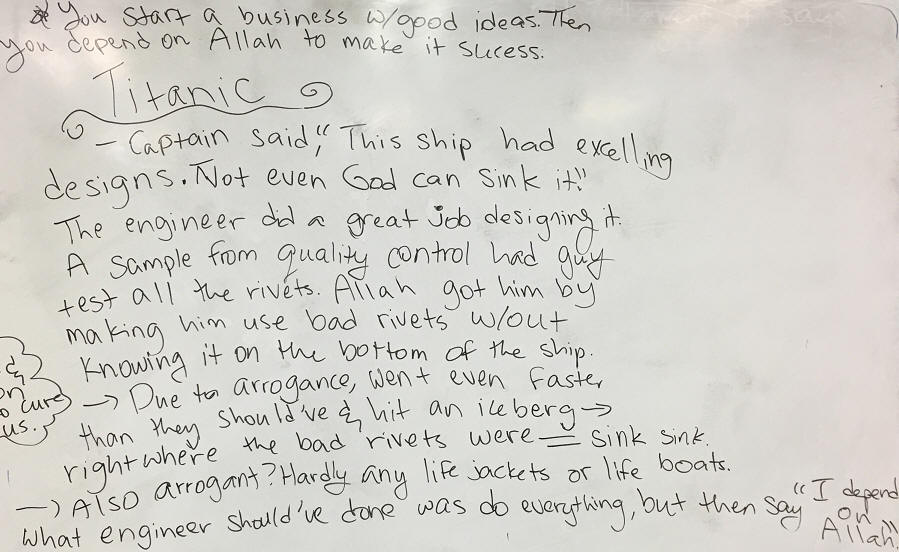 * You start a business w/good ideas. Then
you depend on Allah to make it sucess.
Titanic
- Captain said, "This ship had excelling
designs. Not even God can sink it!"
The engineer did a great job designing it.
A sample from quality control had guy
test all the rivets. Allah got him by
making him use bad rivets w/out
knowing it on the bottom of the ship.
→ Due to arrogance, went even faster
than they should've & hit an iceberg →
right where the bad rivets were = sink sink.
→ Also arrogant? Hardly any life jackets or life boats.
What engineer should've done was do everything, but then say "I depend
on
Allah."
&
on
o cure
us.